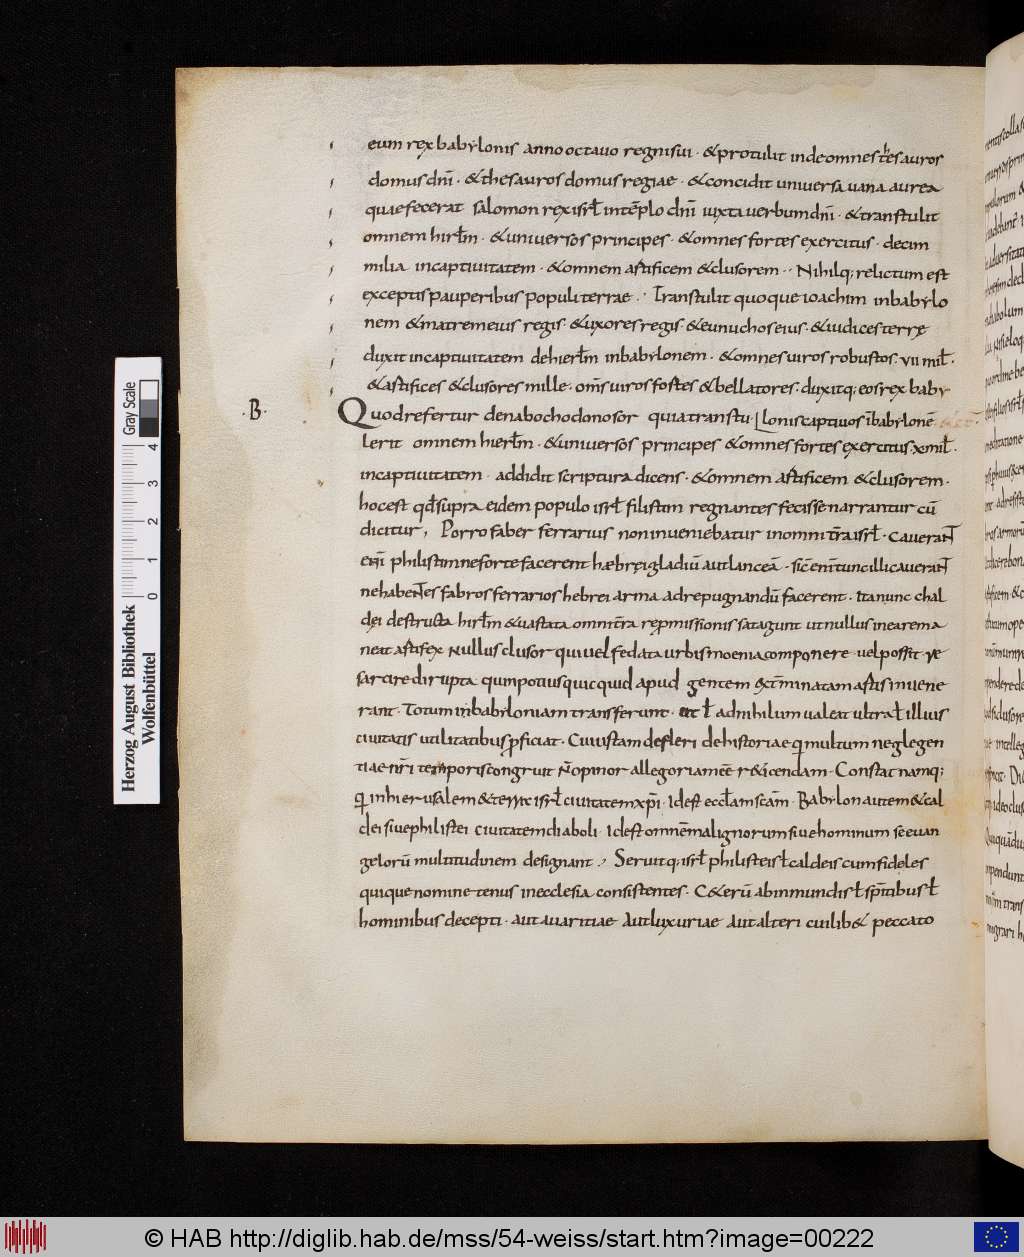 eum rex babylonis anno octavo regni sui · & protulit inde omnes thesauros
domus dnī · & thesauros domus regiae · & concidit universa vana aurea
quae fecerat salomon rex isrł in tēplo dnī iuxta verbum dnī · & transtulit
omnem hirłm · & universos principes · & omnes fortes exercitus · decim
milia in captivitatem · & omnem artificem & clusorem · · Nihilq; relictum est
exceptis pauperibus populi terrae · · Transtulit quoque ioachim in babylo
nem & matrem eius regis · & uxores regis · & eunuchos eius · & iudices terrę
duxit in captivitatem de hierłm in babylonem · & omnes viros robustos · vii mił ·
& artifices & clusores mille · om̄s viros fortes & bellatores · duxitq; eos rex baby
· B · Quod refertur de nabochodonosor quia transtu · lonis captivos ī babylonē
lerit omnem hierłm · & universos principes & omnes fortes exercitus · x mił ·
in captivitatem · addidit scriptura dicens · & omnem artificem & clusorem ·
hoc est qđ supra eidem populo isrł filistim regnantes fecisse narrantur cū
dicitur, Porro faber ferrarius non inveniebatur in omni t̄ra isrł · caverant
enī philistim ne forte facerent hæbręi gladiū aut lanceā · sic enī tunc illi caverant
ne habentes fabros ferrarios hebrei arma ad repugnandū facerent · Ita nunc chal
dęi destructa hirłm & vastata omni t̄ra repmissionis satagunt ut nullus in ea rema
neat artifex nullus clusor qui vel fedata urbis moenia componere vel possit re
sarcire dirupta quin potius quicquid apud gentem ext̄minatam artis invene
rant · Totum in babyloniam transferunt · ut ł ad nihilum valeat ultra ł illius
civitatis utilitatibus pficiat · Cuius tam defleri de historiae qi multum neglegen
tiae nr̄i temporis congruit n̄ opinor allegoriam eē r&icendam · Constat namq;
qi in hierusalem & terre isrł civitatem xpī · id est eccłam scām · Babylon autem & cal
dei sive philistei civitatem diaboli · id est omnē malignorum sive hominum se euan
gelorū multitudinem designant · , Servitq; isrł philisteis ł caldeis cum fideles
quique nomine tenus in ecclesia consistentes · C&erū ab inmundis ł sp̄itibus ł
hominibus decepti · aut avaritiae aut luxuriae aut alteri cuilib& peccato
Herzog August Bibliothek
Wolfenbüttel
0 1 2 3 4
Gray Scale
© HAB http://diglib.hab.de/mss/54-weiss/start.htm?image=00222